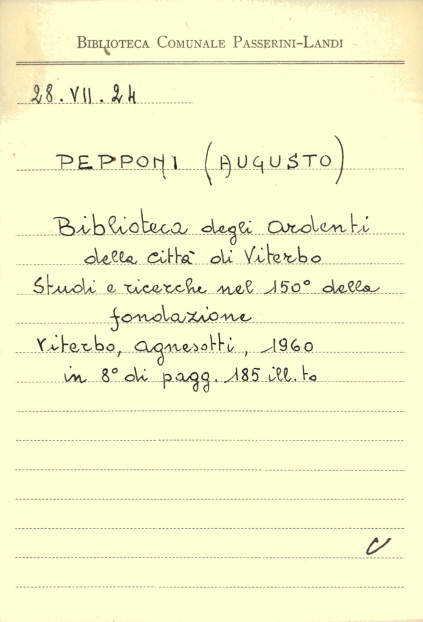 BIBLIOTECA COMUNALE PASSERINI-LANDI
28.VII.24
PEPPONI (AUGUSTO)
Biblioteca degli Ardenti
della città di Viterbo
Studi e ricerche nel 150° della
fondazione
Viterbo, Agnesotti, 1960
in 8° di pagg. 185 ill.to